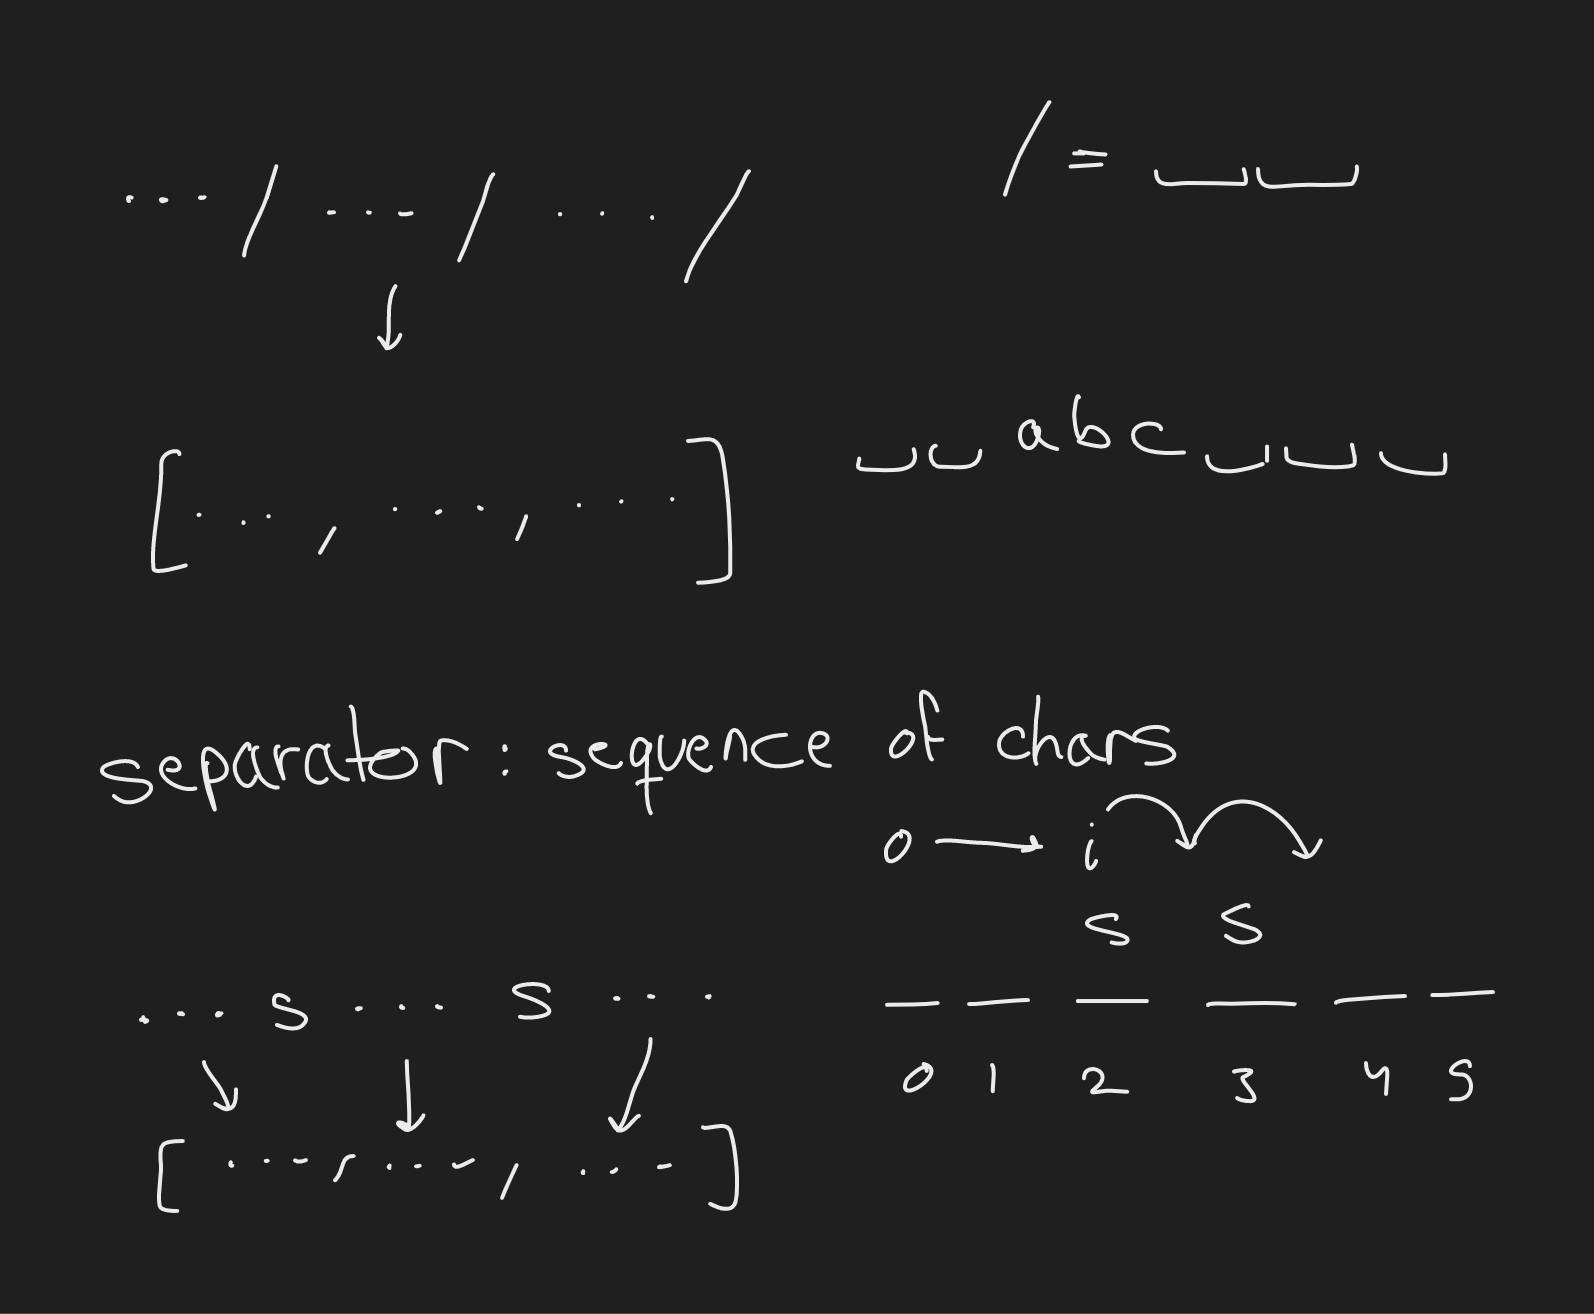 ... / ... / ... /
/ = ␣␣
[ ... , ... , ... ]
␣␣abc␣␣␣
separator: sequence of chars
0 → i
s s
... s ... s ...
_ _ _ _ _ _
0 1 2 3 4 5
[ ... , ... , ... ]